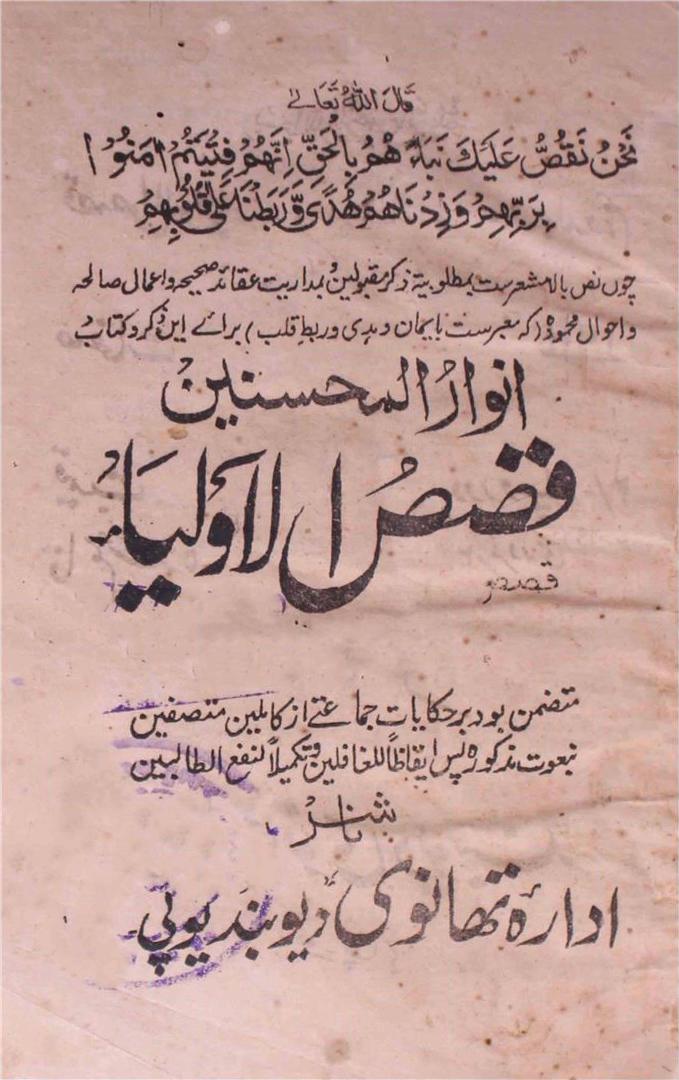 قَالَ اللہُ تَعَالٰے
نَحْنُ نَقُصُّ عَلَيْكَ نَبَاَءَ هُمْ بِالْحَقِّ اِنَّهُمْ فِتْيَتُمْ اٰمَنُوْا
بِرَبِّهِمْ وَزِدْنَاهُمْ هُدًى وَّرَبَطْنَا عَلٰى قُلُوْبِهِمْ
چوں نص بالا مشعرست بمطلوبیۃ ذکر مقبولین بمداریت عقائد صحیحہ و اعمال صالحہ
و احوال محمودہ (کہ معبرست بایمان و ہدی و ربط قلب) برائے ایں ذکر و کتاب
انوار المحسنین
قصصُ الاَولیاء
قصص
متضمن بود بر حکایات جماعتے از کاملین متصفین
نبعوت مذکورہ پس ایقاظاً للغافلین و تکمیلاً لنفع الطالبین
ناشر
ادارہٴ تھانوی دیوبند یوپی